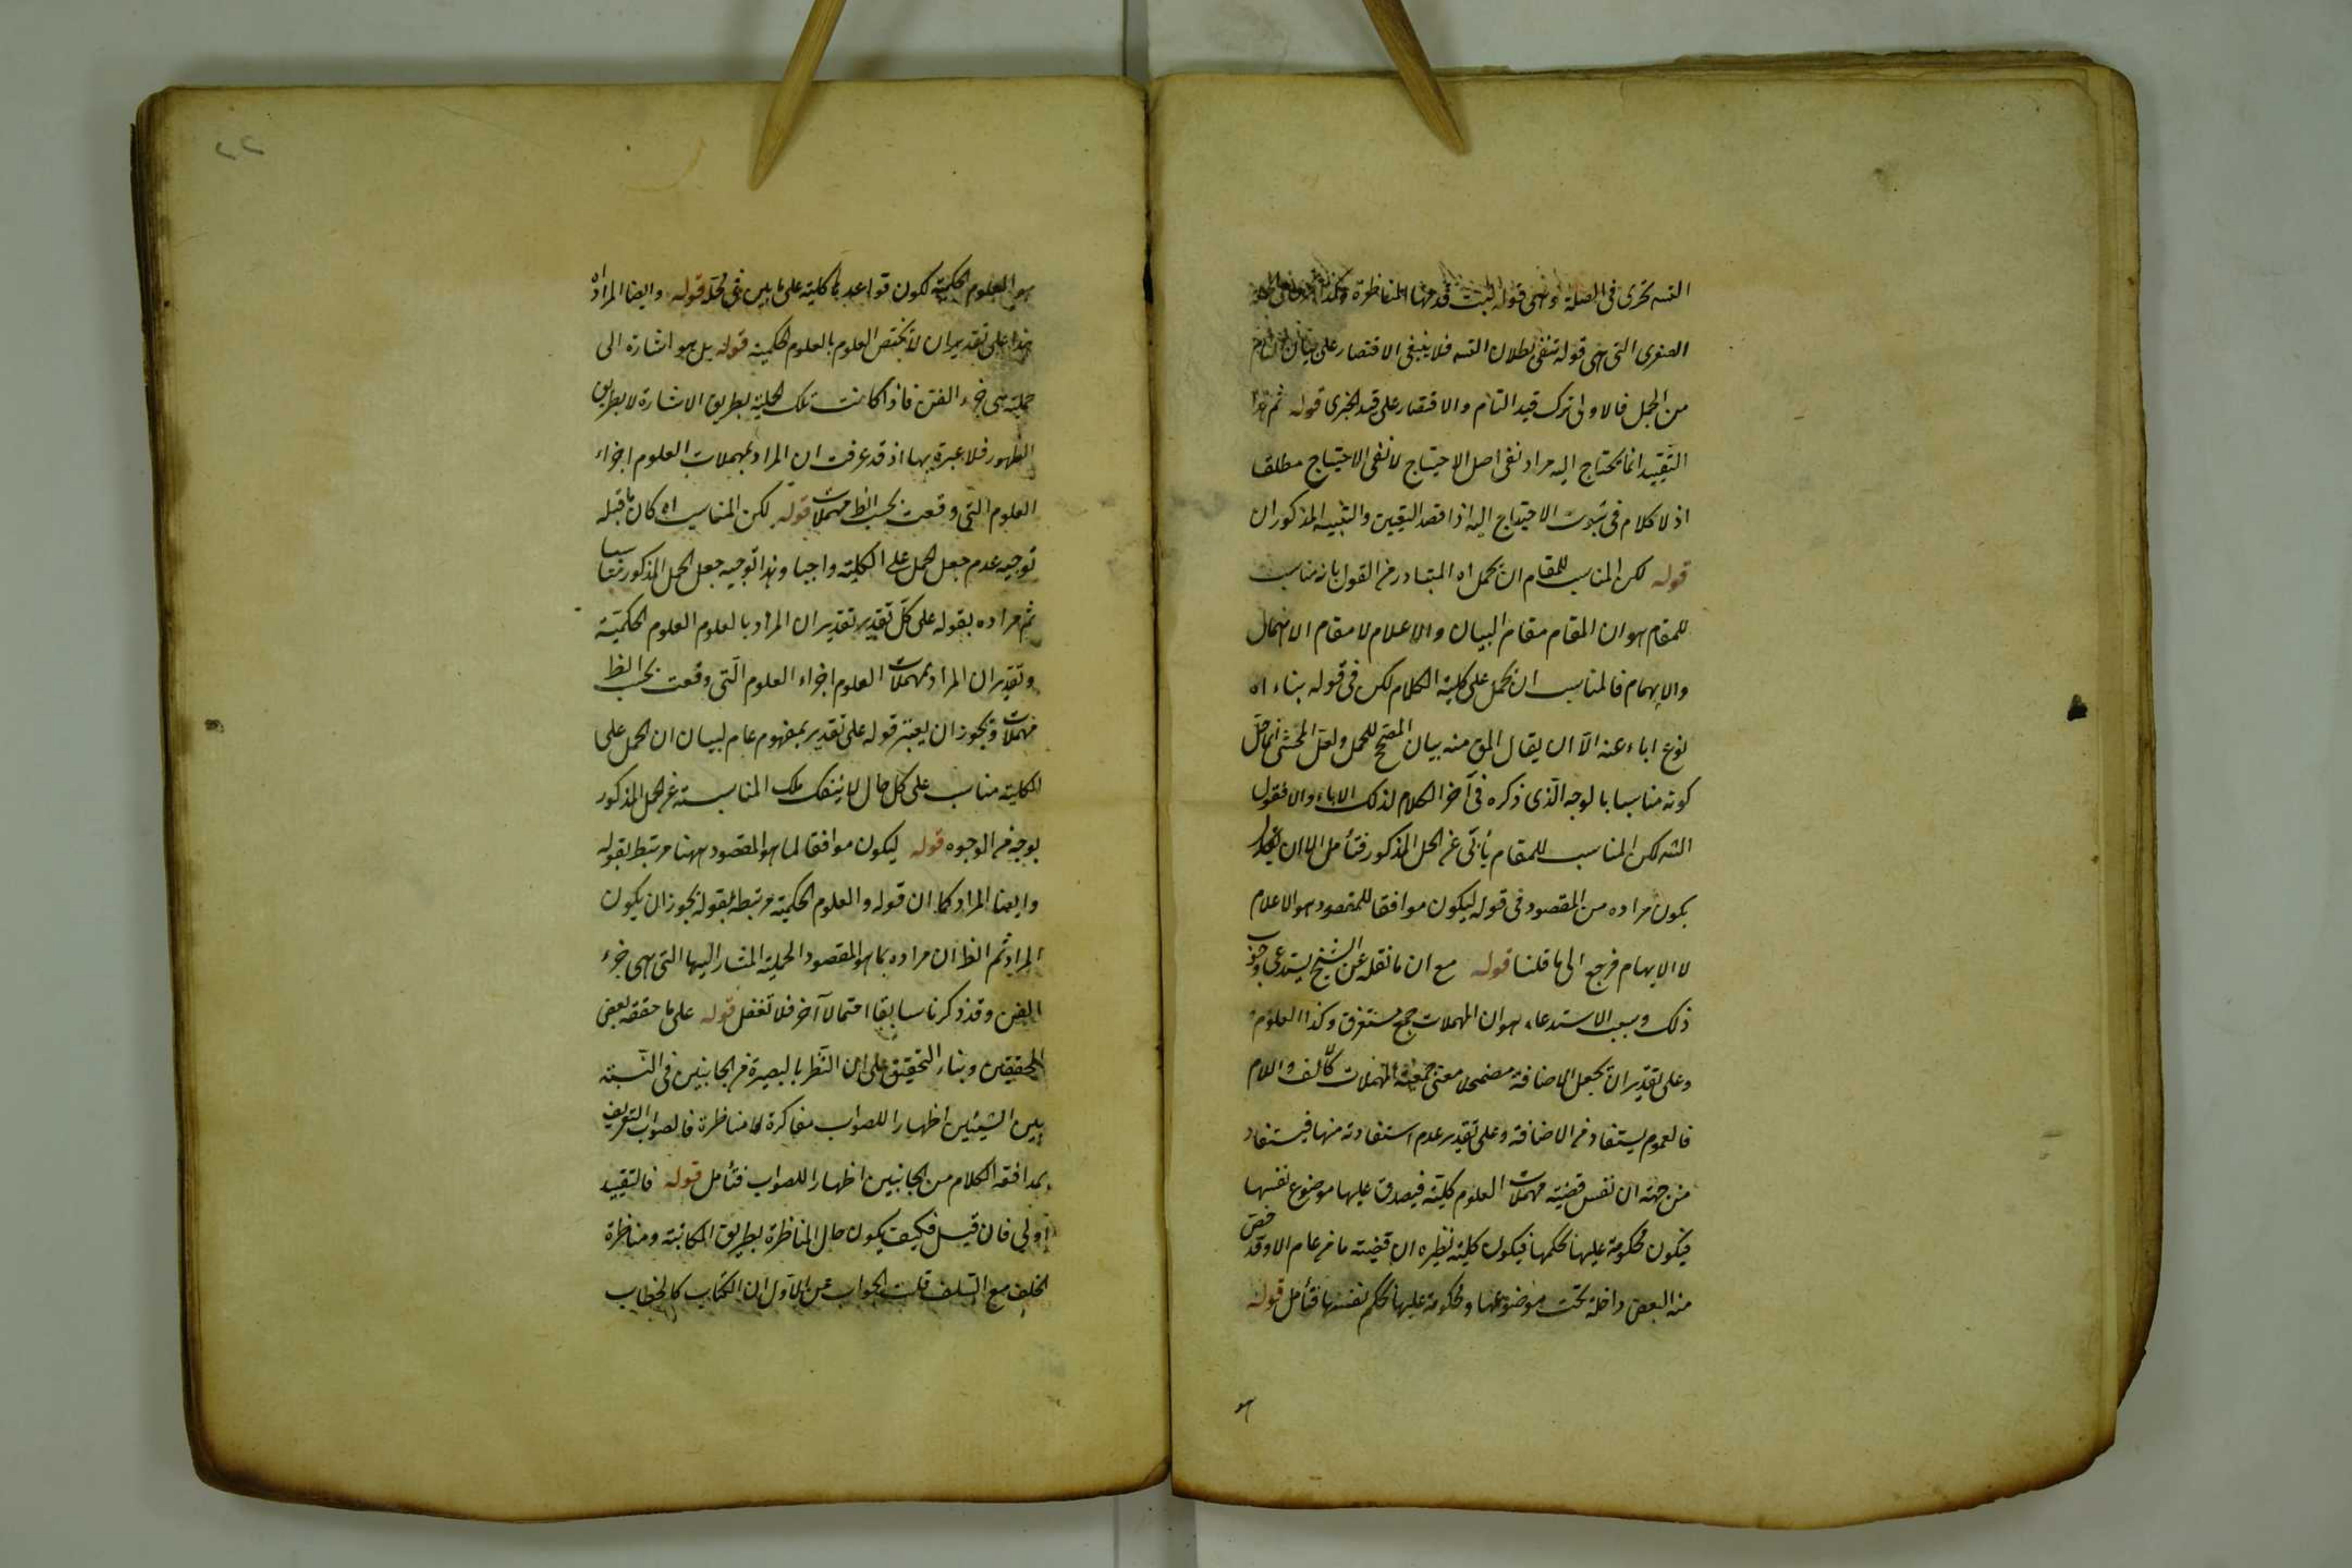 النسبة كبرى في الصلة وهي قوله البت قدمنا المناظرة
الصغرى التي هي قوله تنفي بطلان النسبة فلا ينبغي الاقتصار على بيان
من الجمل فالاولى ترك قيد التام والاقتصار على قيد الخبرى قوله ثم هذا
التقييد انما يحتاج اليه مراد نفى اصل الاحتياج لا نفى الاحتياج مطلقا
اذ لا كلام في ثبوت الاحتياج اليه اذا قصد اليقين والتنبيه المذكوران
قوله لكن المناسب للمقام ان يحمل اه المتبادر من القول بانه مناسب
للمقام هو ان المقام مقام البيان والاعلام لا مقام الاهمال
والابهام فالمناسب ان يحمل على كلية الكلام لكن في قوله بناء اه
نوع اباء عنه الا ان يقال المق منه بيان المصحح للحمل ولعل المحشى انما حمل
كونه مناسبا بالوجه الذى ذكره في آخر الكلام لذلك الاباء والا فقول
الشه لكن المناسب للمقام يأبى عن الحمل المذكور فتأمل الا ان
يكون مراده من المقصود في قوله ليكون موافقا للمقصود هو الاعلام
لا الابهام فرجع الى ما قلنا قوله مع ان ما نقله عن الشيخ يستدعى وجوب
ذلك وسبب الاستدعاء هو ان المهملات جمع مستغرق وكذا العلوم
وعلى تقدير ان تجعل الاضافة مضمحلا معنى جمعية المهملات كالف واللام
فالعموم يستفاد من الاضافة وعلى تقدير عدم استفادته منها فيستفاد
من جهة ان نفس قضية مهملات العلوم كلية فيصدق عليها موضوع نفسها
فيكون محكومة عليها بحكمها فيكون كلية نظيره ان قضية ما من عام الا وقد خص
منه البعض داخلة تحت موضوعها ومحكومة عليها بحكم نفسها فتأمل قوله
هو
هو العلوم الحكمية لكون قواعدها كلية على ما بين في محله قوله وايضا المراد اه
هذا على تقدير ان لا يختص العلوم بالعلوم الحكمية قوله بل هو اشارة الى
حملية هي جزء الفن فاذا كانت تلك الحملية بطريق الاشارة لا بطريق
الظهور فلا عبرة بها اذ قد عرفت ان المراد بمهملات العلوم اجزاء
العلوم التي وقعت بحسب الظ مهملات قوله لكن المناسب اه كان ما قبله
توجيه عدم جعل الحمل على الكلية واجبا وهذا توجيه جعل الحمل المذكور مناسبا
ثم مراده بقوله على كل تقدير تقدير ان المراد بالعلوم العلوم الحكمية
وتقدير ان المراد بمهملات العلوم اجزاء العلوم التي وقعت بحسب الظ
مهملات ويجوز ان يعتبر قوله على تقدير بمفهوم عام لبيان ان الحمل على
الكلية مناسب على كل حال لا ينفك تلك المناسبة عن الحمل المذكور
بوجه من الوجوه قوله ليكون موافقا لما هو المقصود ههنا مرتبط بقوله
وايضا المراد كما ان قوله والعلوم الحكمية مرتبطة بقوله يجوز ان يكون
المراد ثم الظ ان مراده بما هو المقصود الحملية المشار اليها التي هي جزء
الفن وقد ذكرنا سابقا احتمالا آخر فلا تغفل قوله على ما حققه بعض
المحققين وبناء التحقيق على ان النظر بالبصيرة من الجانبين في النسبة
بين الشيئين اظهارا للصواب مفاكرة لا مناظرة فالصواب التعريف
بمدافعة الكلام من الجانبين اظهارا للصواب فتأمل قوله فالتقييد
اولى فان قيل فكيف يكون حال المناظرة بطريق المكاتبة ومناظرة
الخلف مع السلف قلت الجواب عن الاول ان الكتاب كالخطاب